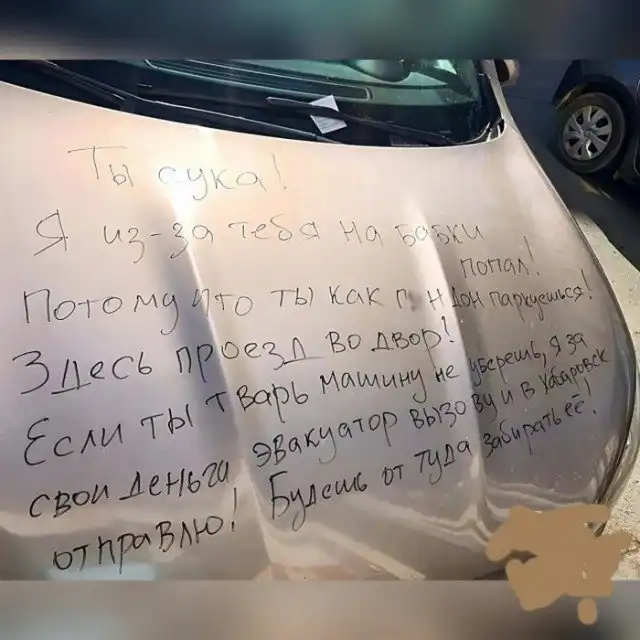 Ты сука!
Я из-за тебя на бабки
попал!
Потому что ты как п н дон паркуешься!
Здесь проезд во двор!
Если ты тварь машину не уберешь, я за
свои деньги эвакуатор вызову и в Хабаровск
отправлю! Будешь от туда забирать её!